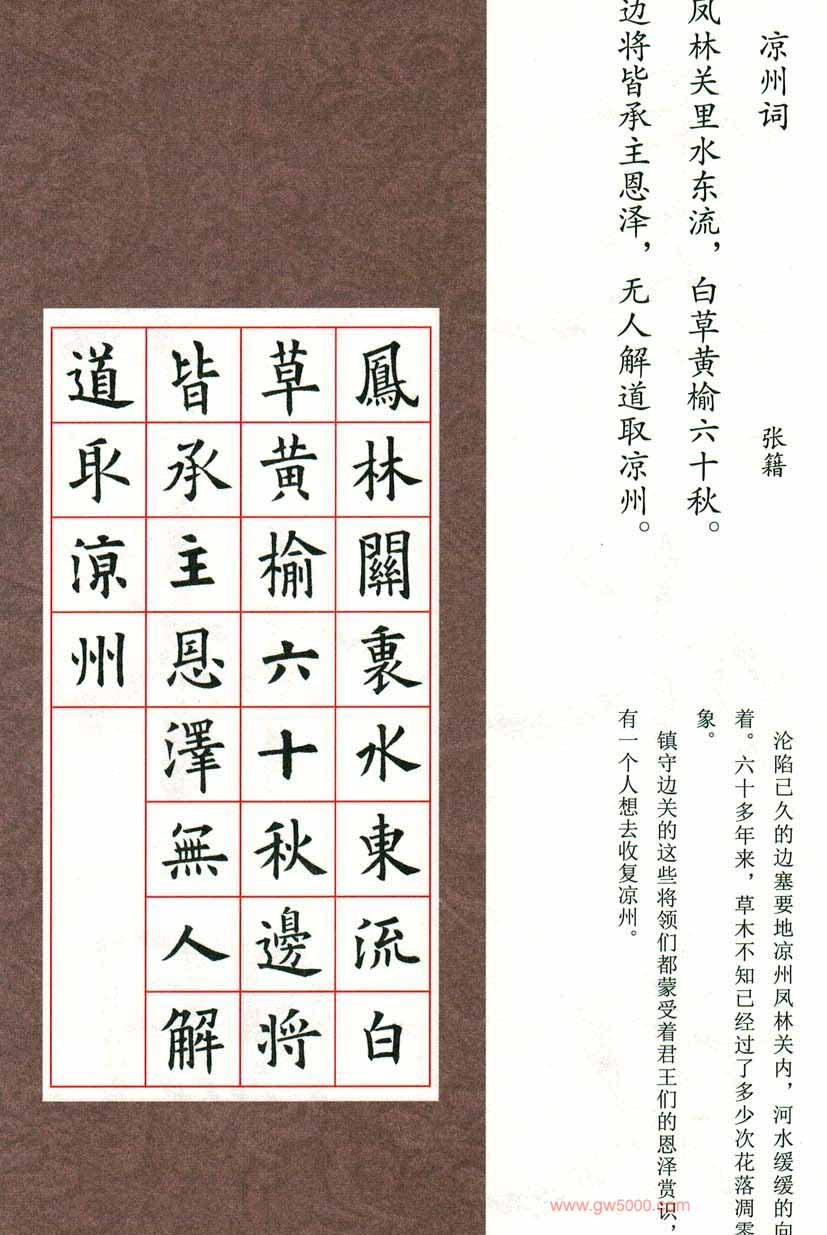 凉州词
张籍
凤林关里水东流，白草黄榆六十秋。
边将皆承主恩泽，无人解道取凉州。
沦陷已久的边塞要地凉州凤林关内，河水缓缓的向
着。六十多年来，草木不知已经过了多少次花落凋零
象。
镇守边关的这些将领们都蒙受着君王们的恩泽赏识，
有一个人想去收复凉州。
鳳林關裏水東流白
草黄榆六十秋邊將
皆承主恩澤無人解
道取涼州
www.gw5000.com